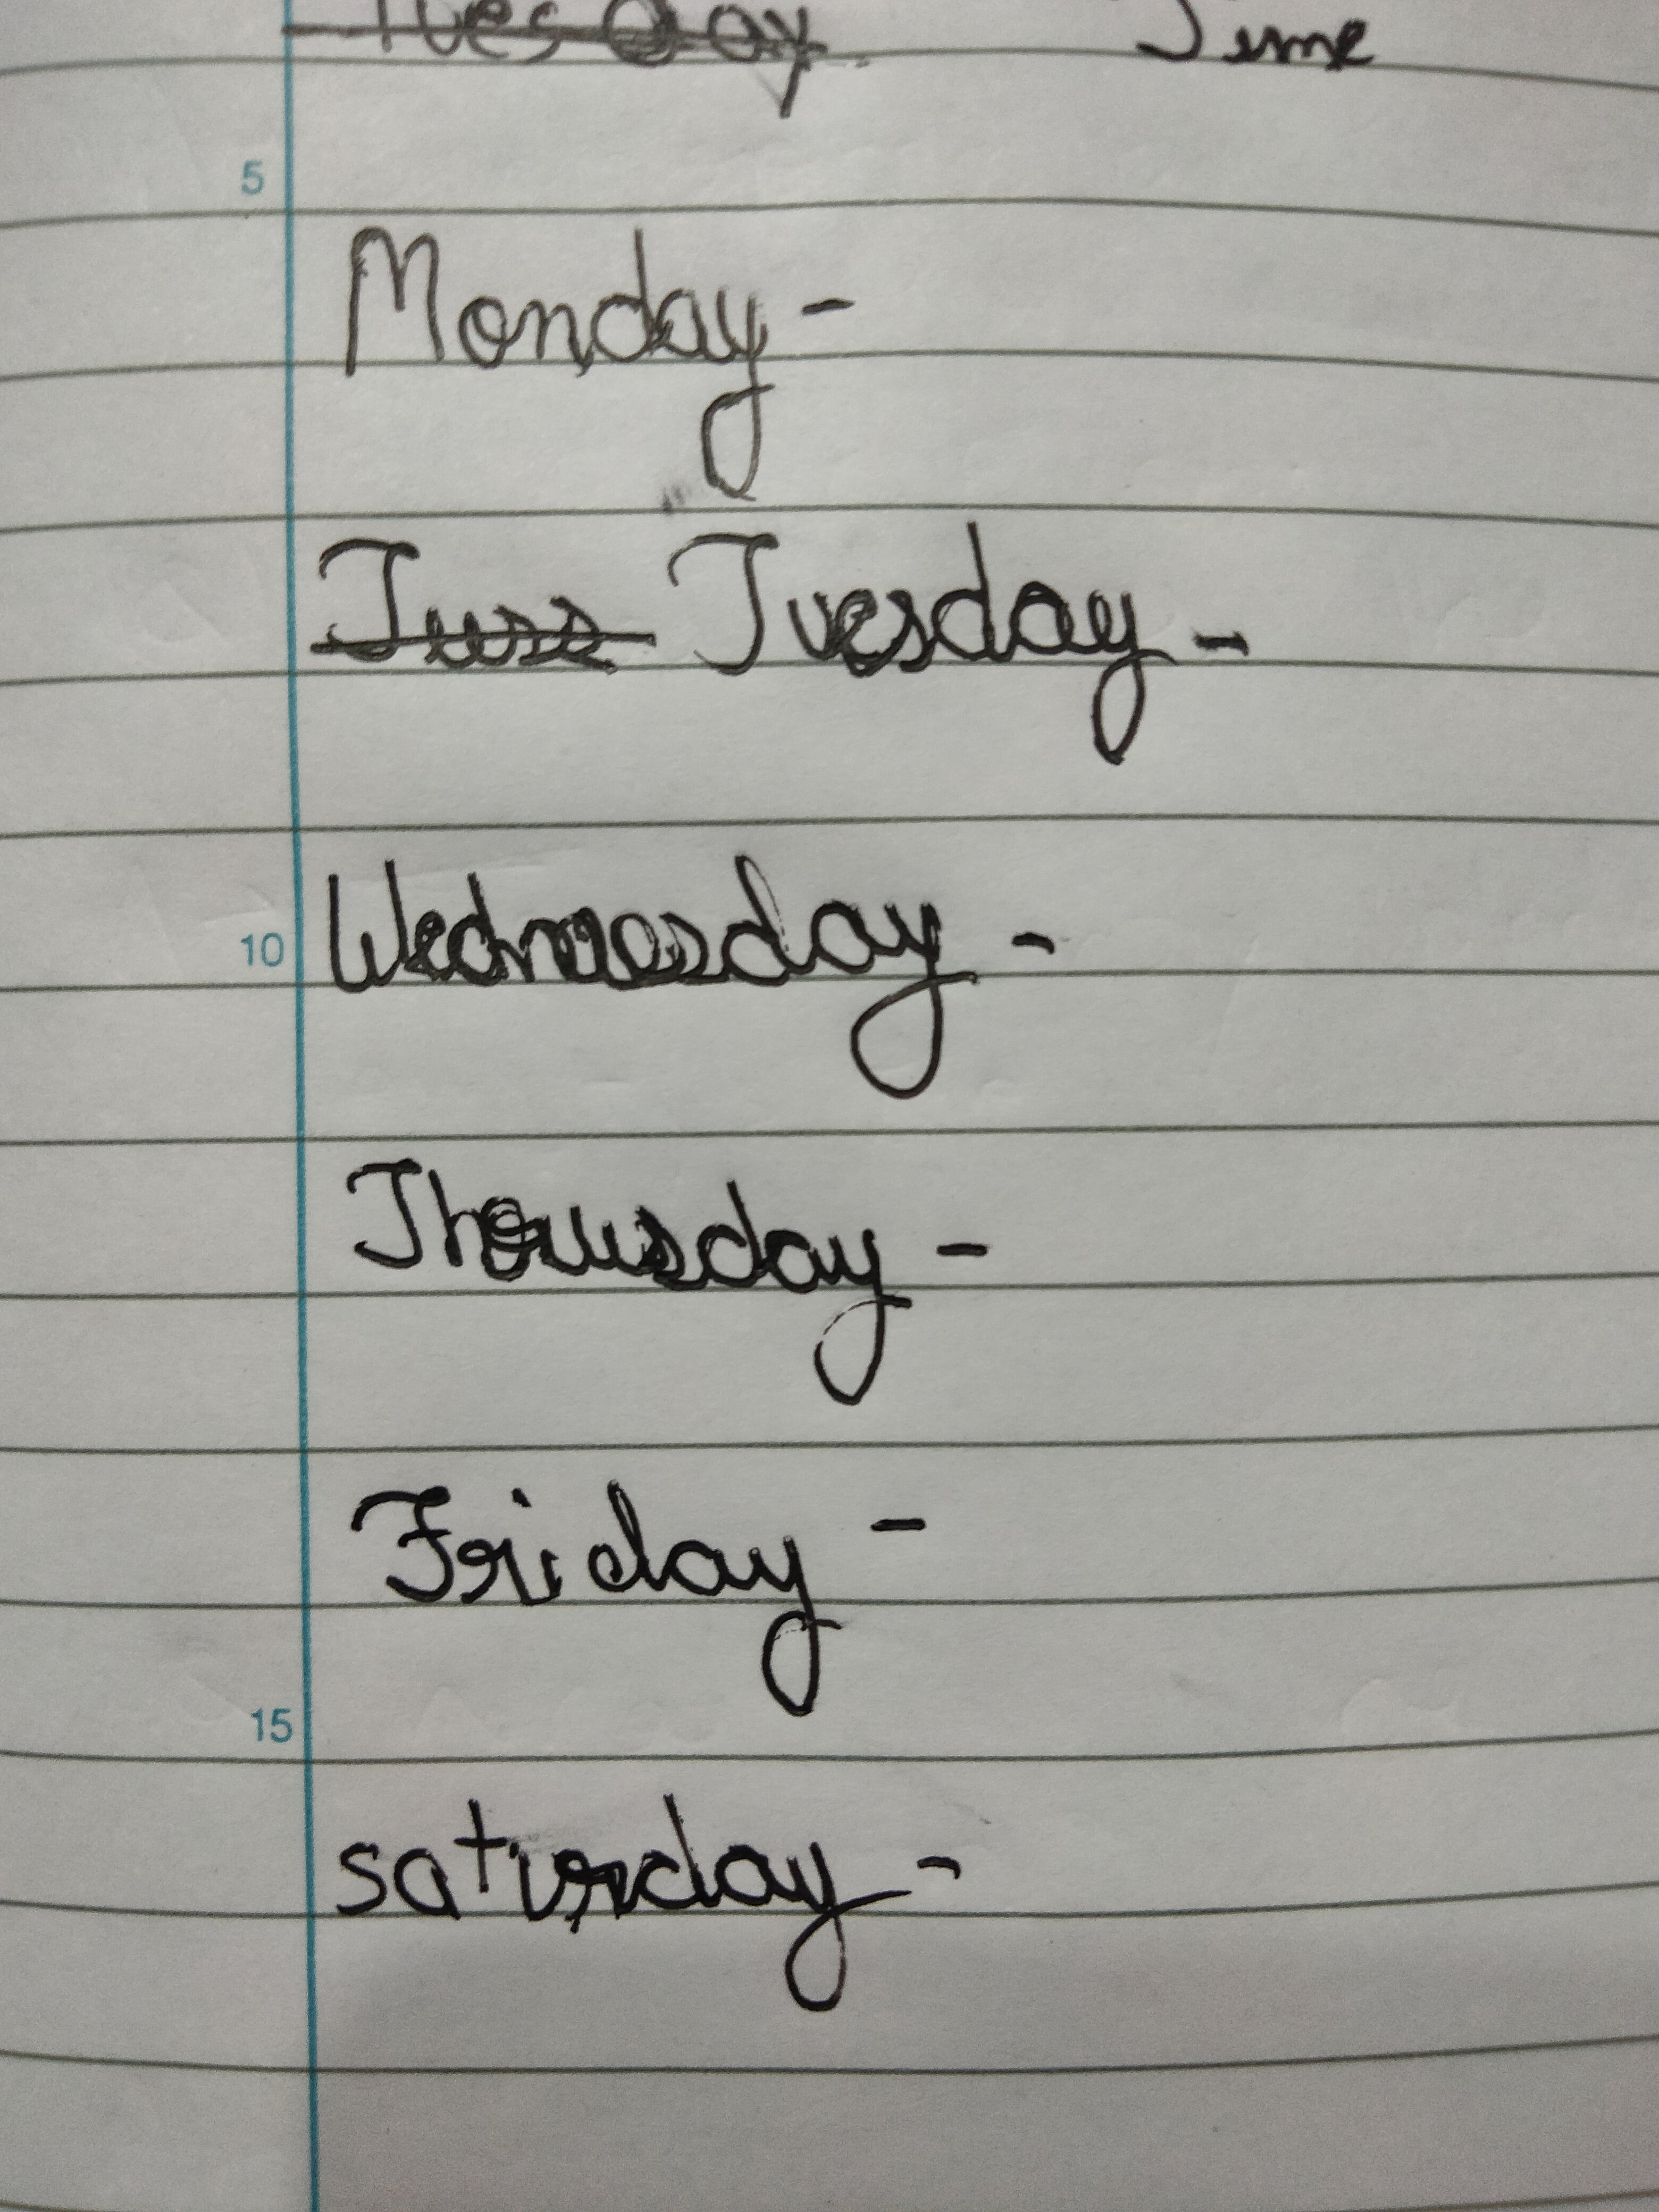 Tuesday Time
5
Monday -
Tuesday -
Wednesday -
10
Thursday -
Friday -
15
saturday -